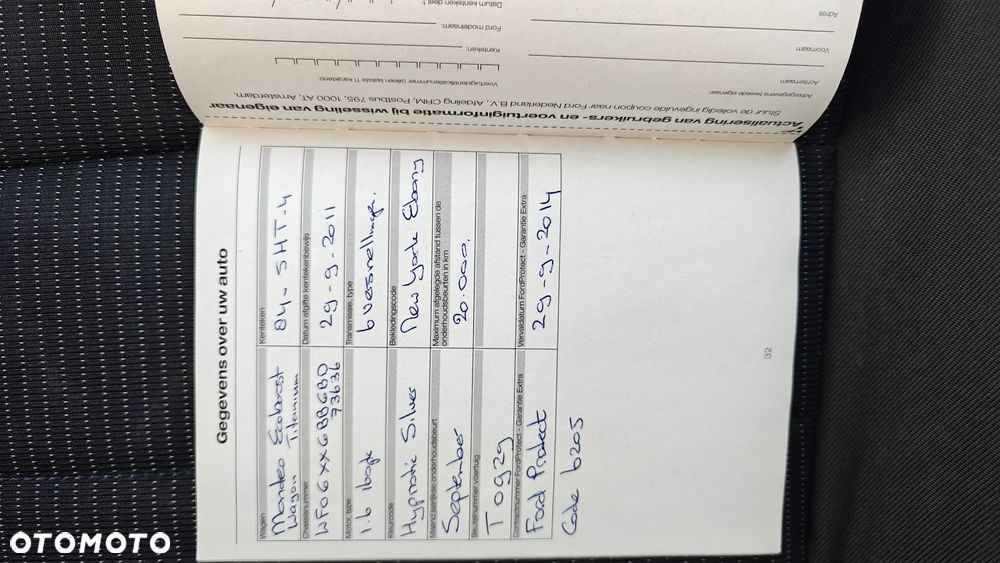 Gegevens over uw auto
Wagen
Mondeo Ecoboost
Wagon Titanium
Kenteken
84-SHT-4
Chassisnummer
WF06XX6BB6BD
73636
Datum afgifte kentekenbewijs
29-9-2011
Motor, type
1.6 160pk
Transmissie, type
6 versnellingen.
Kleurcode
Hypnotic Silver
Bekledingscode
New York Ebony
Maand jaarlijkse onderhoudsbeurt
September
Maximum afgelegde afstand tussen de
onderhoudsbeurten in km
20.000,
Sleutelnummer voertuig
T0929
Contractnummer FordProtect - Garantie Extra
Ford Protect
Vervaldatum FordProtect - Garantie Extra
29-9-2014
Code 6205
32
Actualisering van gebruikers- en voertuiginformatie bij wisseling van eigenaar
Stuur de volledig ingevulde coupon naar Ford Nederland B.V., Afdeling CRM, Postbus 795, 1000 AT, Amsterdam.
Adresgegevens tweede eigenaar:
Achternaam
Voornaam
Adres
Voertuigidentificatienummer (alleen laatste 11 karakters)
Kenteken:
Ford modelnaam:
Datum kenteken deel 1:
OTOMOTO